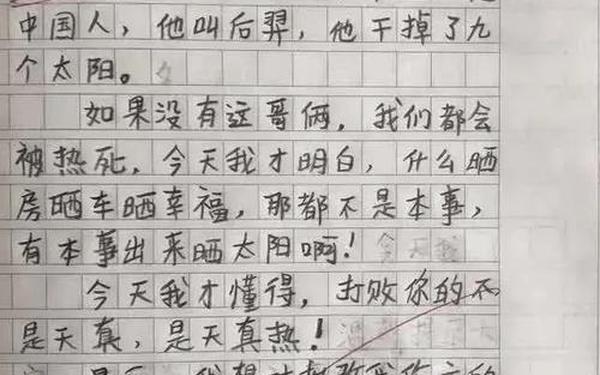 中国人，他叫后羿，他干掉了九
个太阳。
如果没有这哥俩，我们都会
被热死，今天我才明白，什么晒
房晒车晒幸福，那都不是本事，
有本事出来晒太阳啊！
今天我才懂得，打败你的不
是天真，是天真热！